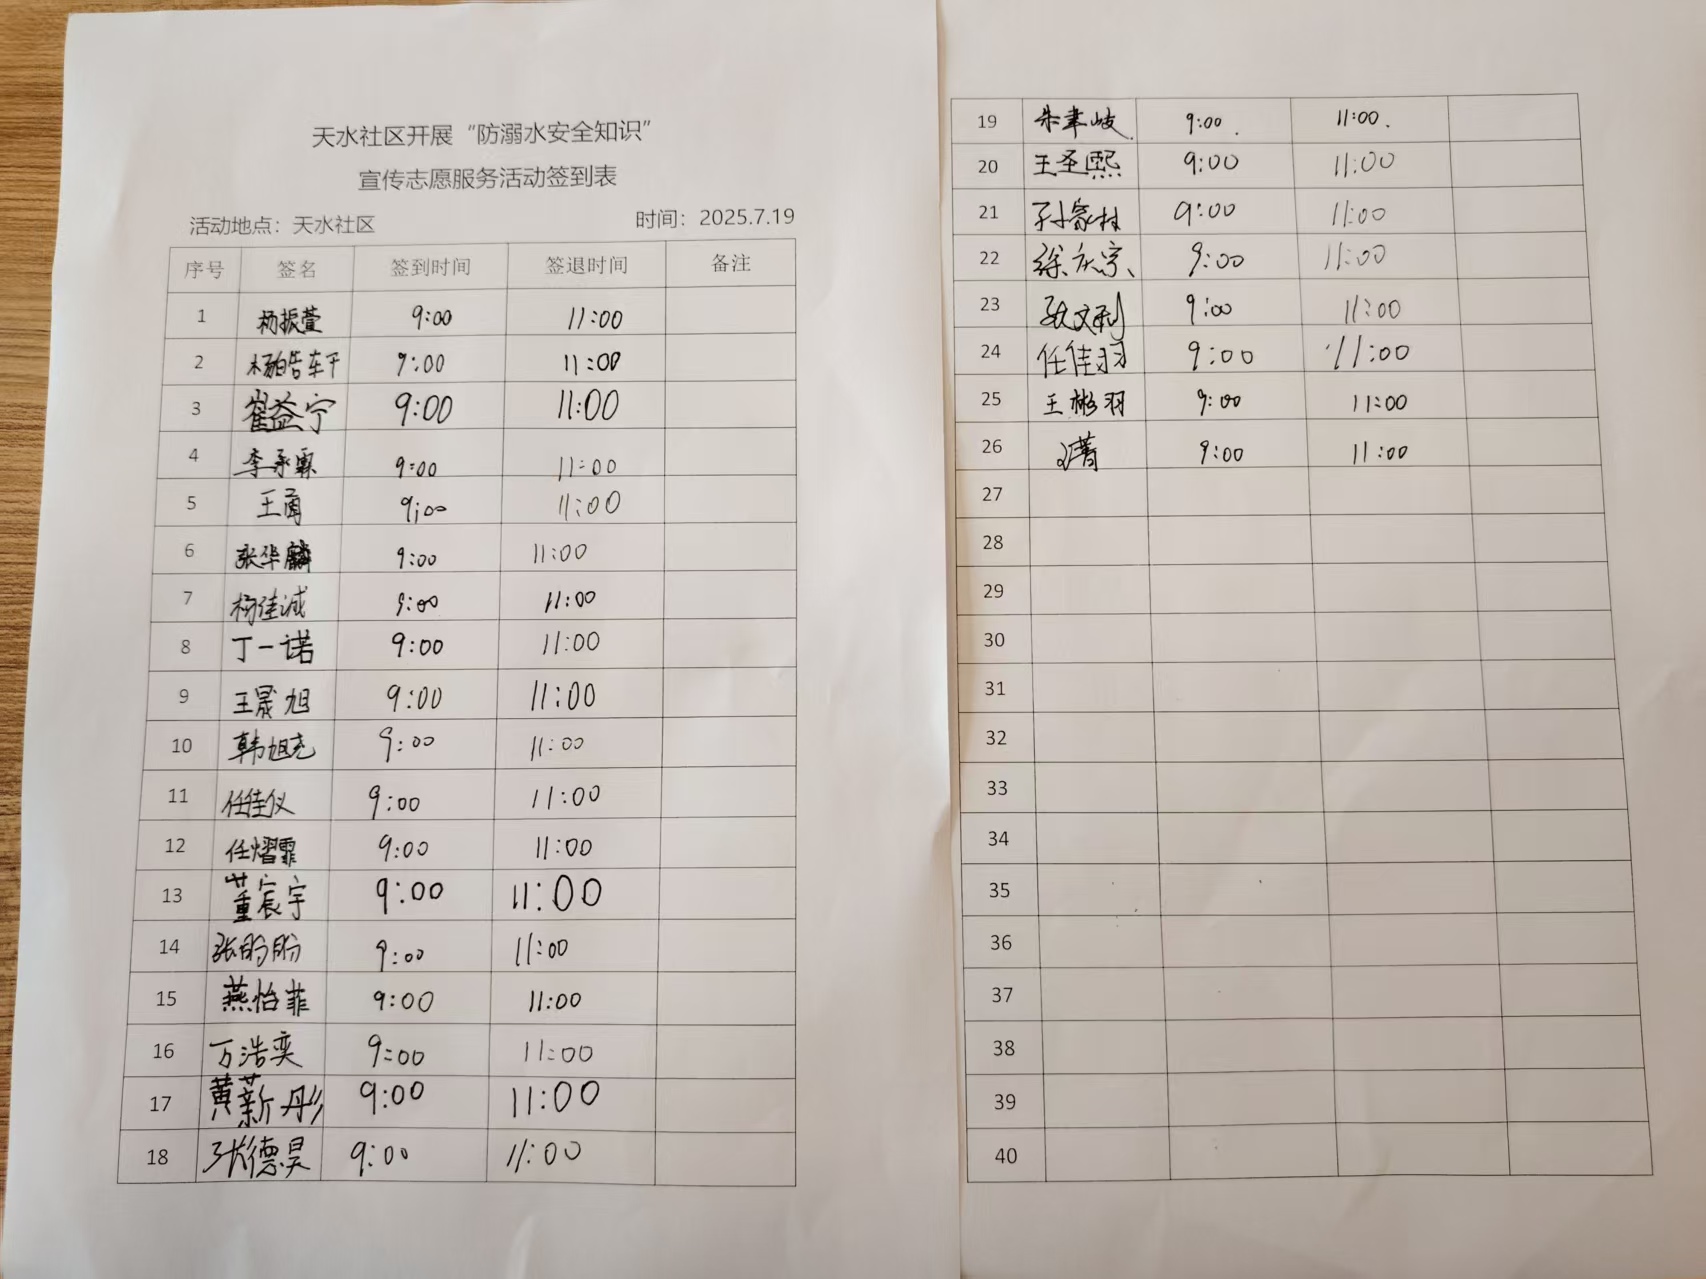 天水社区开展“防溺水安全知识”
宣传志愿服务活动签到表
活动地点：天水社区 时间：2025.7.19
序号 签名 签到时间 签退时间 备注
1 杨振萱 9:00 11:00
2 杨皓轩 9:00 11:00
3 崔益宁 9:00 11:00
4 李承霖 9:00 11:00
5 王甬 9:00 11:00
6 张华麟 9:00 11:00
7 杨佳诚 9:00 11:00
8 丁一诺 9:00 11:00
9 王晟旭 9:00 11:00
10 韩旭尧 9:00 11:00
11 任佳仪 9:00 11:00
12 任熠霏 9:00 11:00
13 董宸宇 9:00 11:00
14 张昀昐 9:00 11:00
15 燕怡菲 9:00 11:00
16 万浩奕 9:00 11:00
17 黄薪彤 9:00 11:00
18 张德昊 9:00 11:00
19 朱聿岐 9:00 11:00
20 王圣熙 9:00 11:00
21 孙家村 9:00 11:00
22 徐庆宗 9:00 11:00
23 文利 9:00 11:00
24 任佳羽 9:00 11:00
25 王彬羽 9:00 11:00
26 菁 9:00 11:00
27
28
29
30
31
32
33
34
35
36
37
38
39
40